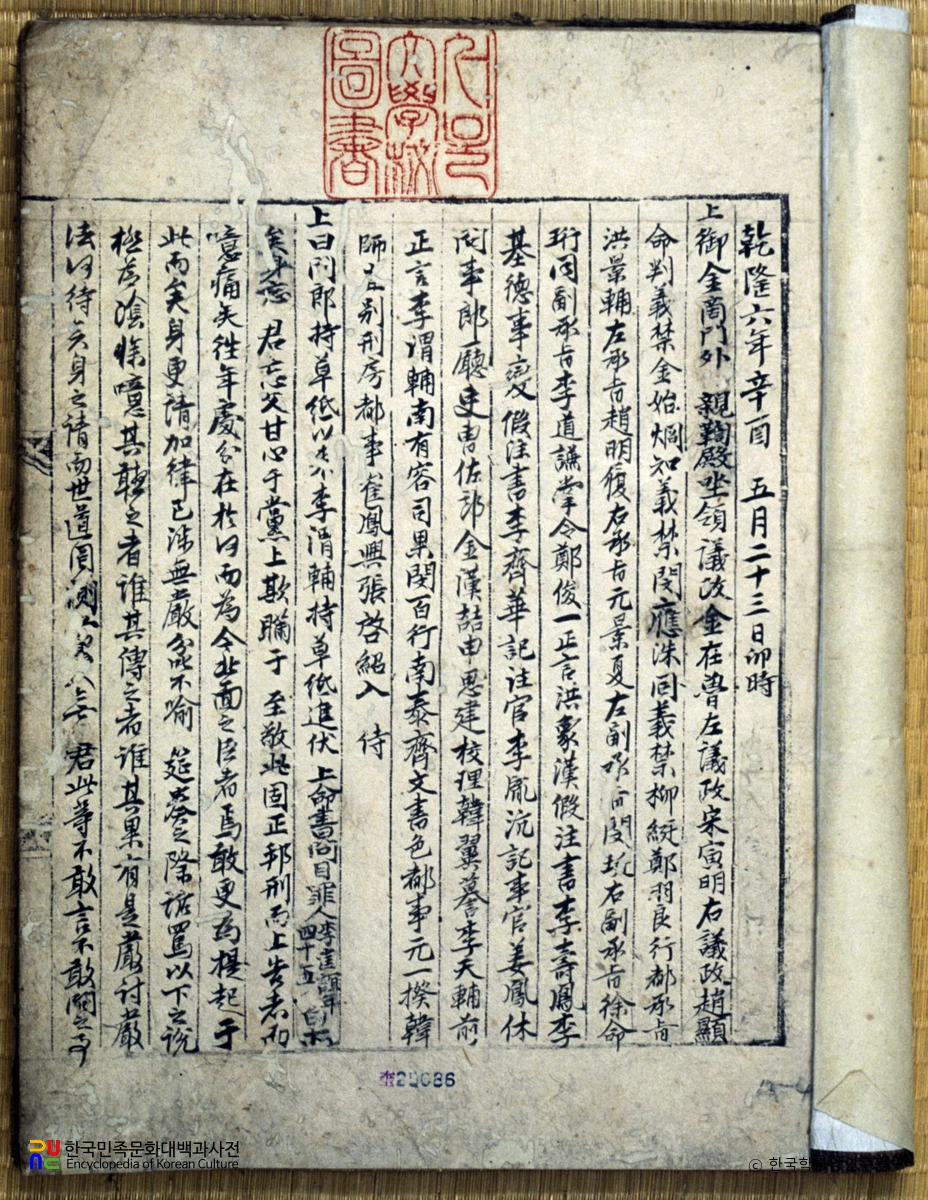 乾隆六年辛酉 五月二十三日卯時
上御金商門外 親鞫殿坐領議政金在魯左議政宋寅明右議政趙顯
命判義禁金始炯知義禁閔應洙同義禁柳綎鄭羽良行都承旨
洪景輔左承旨趙明履右承旨元景夏左副承旨閔珽右副承旨徐命
珩同副承旨李道謙掌令鄭俊一正言洪象漢假注書李壽鳳李
基德事變假注書李齊華記注官李胤沆記事官姜鳳休
問事郎廳吏曹佐郎金漢喆申思建校理韓翼謩李天輔前
正言李渭輔南有容司果閔百行南泰齊文書色都事元一揆韓
師 別刑房都事崔鳳興張啓紹入 侍
上曰問郎持草紙以來李渭輔持草紙進伏 上命書問目罪人李 年四十五
矣身 君忘父甘心于黨上欺瞞于 至敬此固正邦刑而上告者而
噫痛矣往年處分在於何而為今北面之臣者焉敢更為提起于
此而矣身更請加律已涉無嚴 不喻 筵 之際 罵以下之說
極為陰慘噫其聽之者誰其傳之者誰其果有是嚴討嚴
法何待矣身之請而世道罔測 君此等不敢言不敢聞之事
圖書
文學
李25086
한국민족문화대백과사전
Encyclopedia of Korean Culture
© 한국학